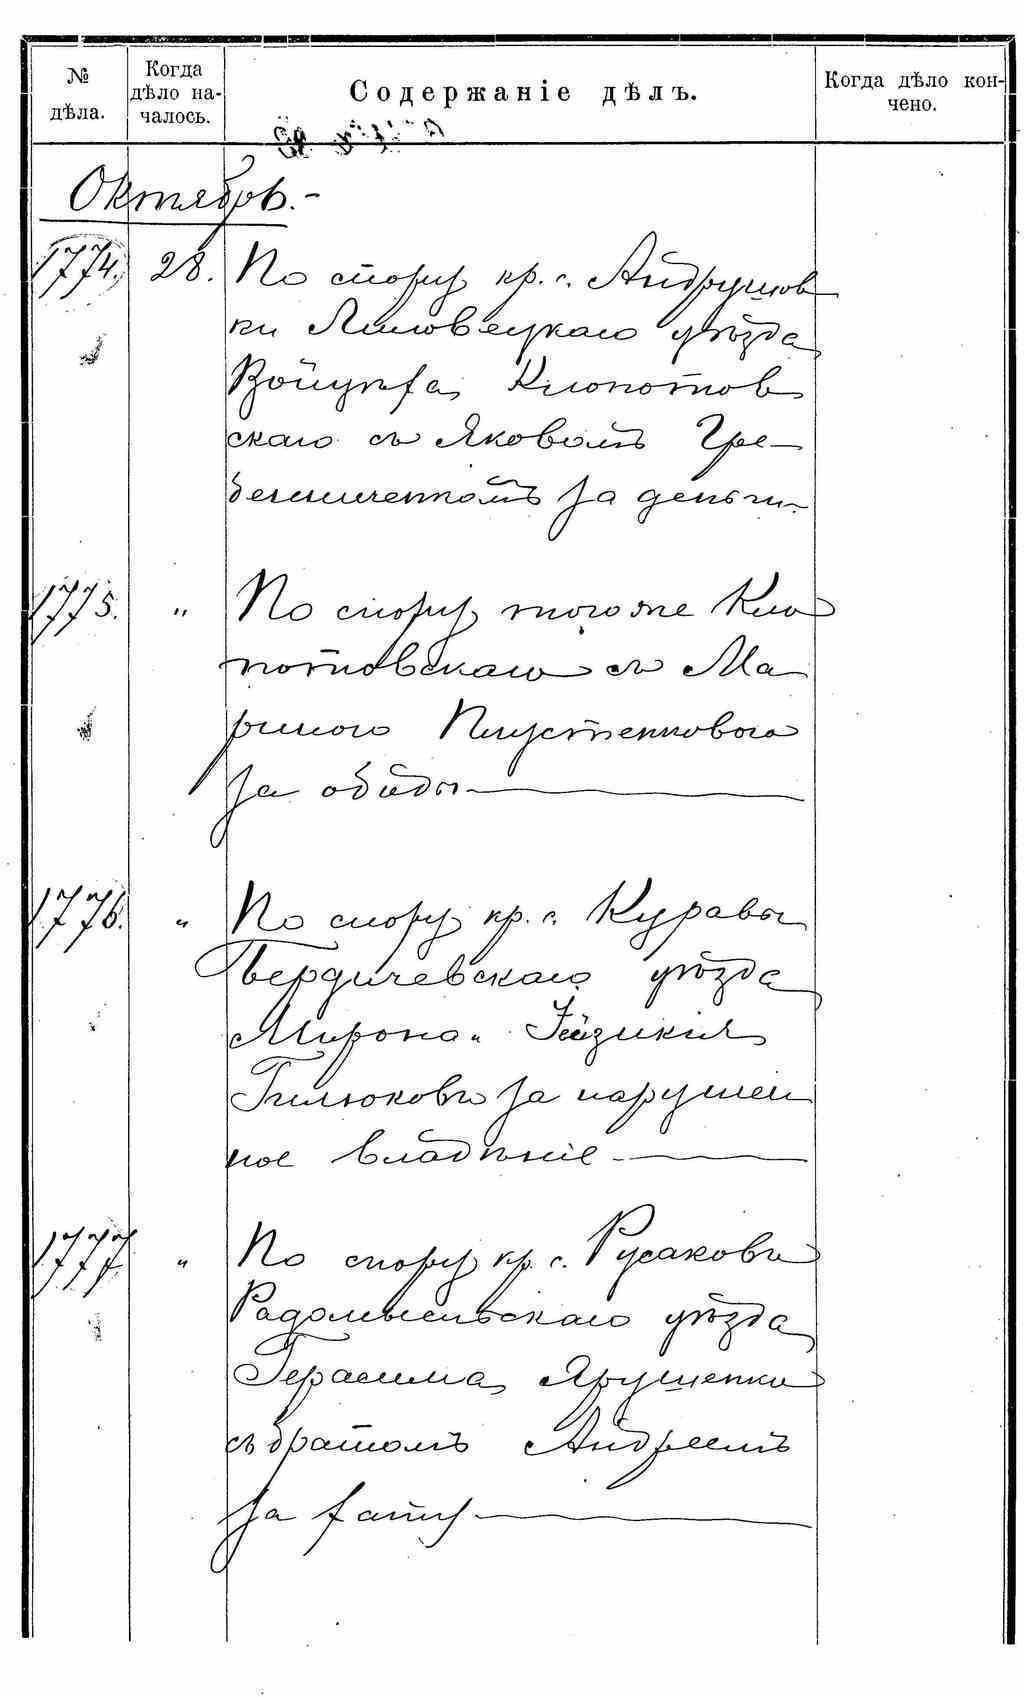 № дѣла.
Когда дѣло на-
чалось.
Содержаніе дѣлъ.
Когда дѣло кон-
чено.
Октябрь.-
1774. 28. По спору кр. с. Андрушов
ки Липовецкаго уѣзда
Войцѣха Клопотов
скаго съ Яковомъ Гре-
бениченкомъ за деньги
1775. " По спору того же Кло
потовскаго съ Ма
риною Плустенковою
за обиды
1776. " По спору кр. с. Куравы
Бердичевскаго уѣзда
Мирона и
Гилюковъ за нарушен
ное владѣніе
1777 " По спору кр. с. Русаковъ
Радомысльскаго уѣзда
Герасима Ярушенка
съ братомъ Андреемъ
за хату